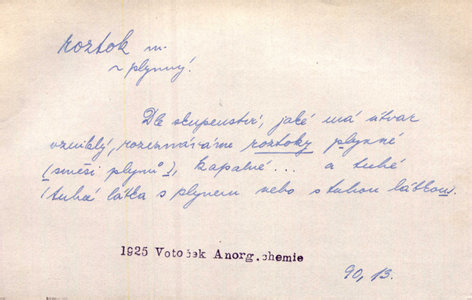 roztok m.
~ plynný.
Dle skupenství, jaké má útvar
vzniklý, rozeznáváme roztoky plynné
(směsi plynů), kapalné... a tuhé
(tuhá látka s plynem nebo s tuhou látkou).
1925 Votoček Anorg.chemie
90, 13.